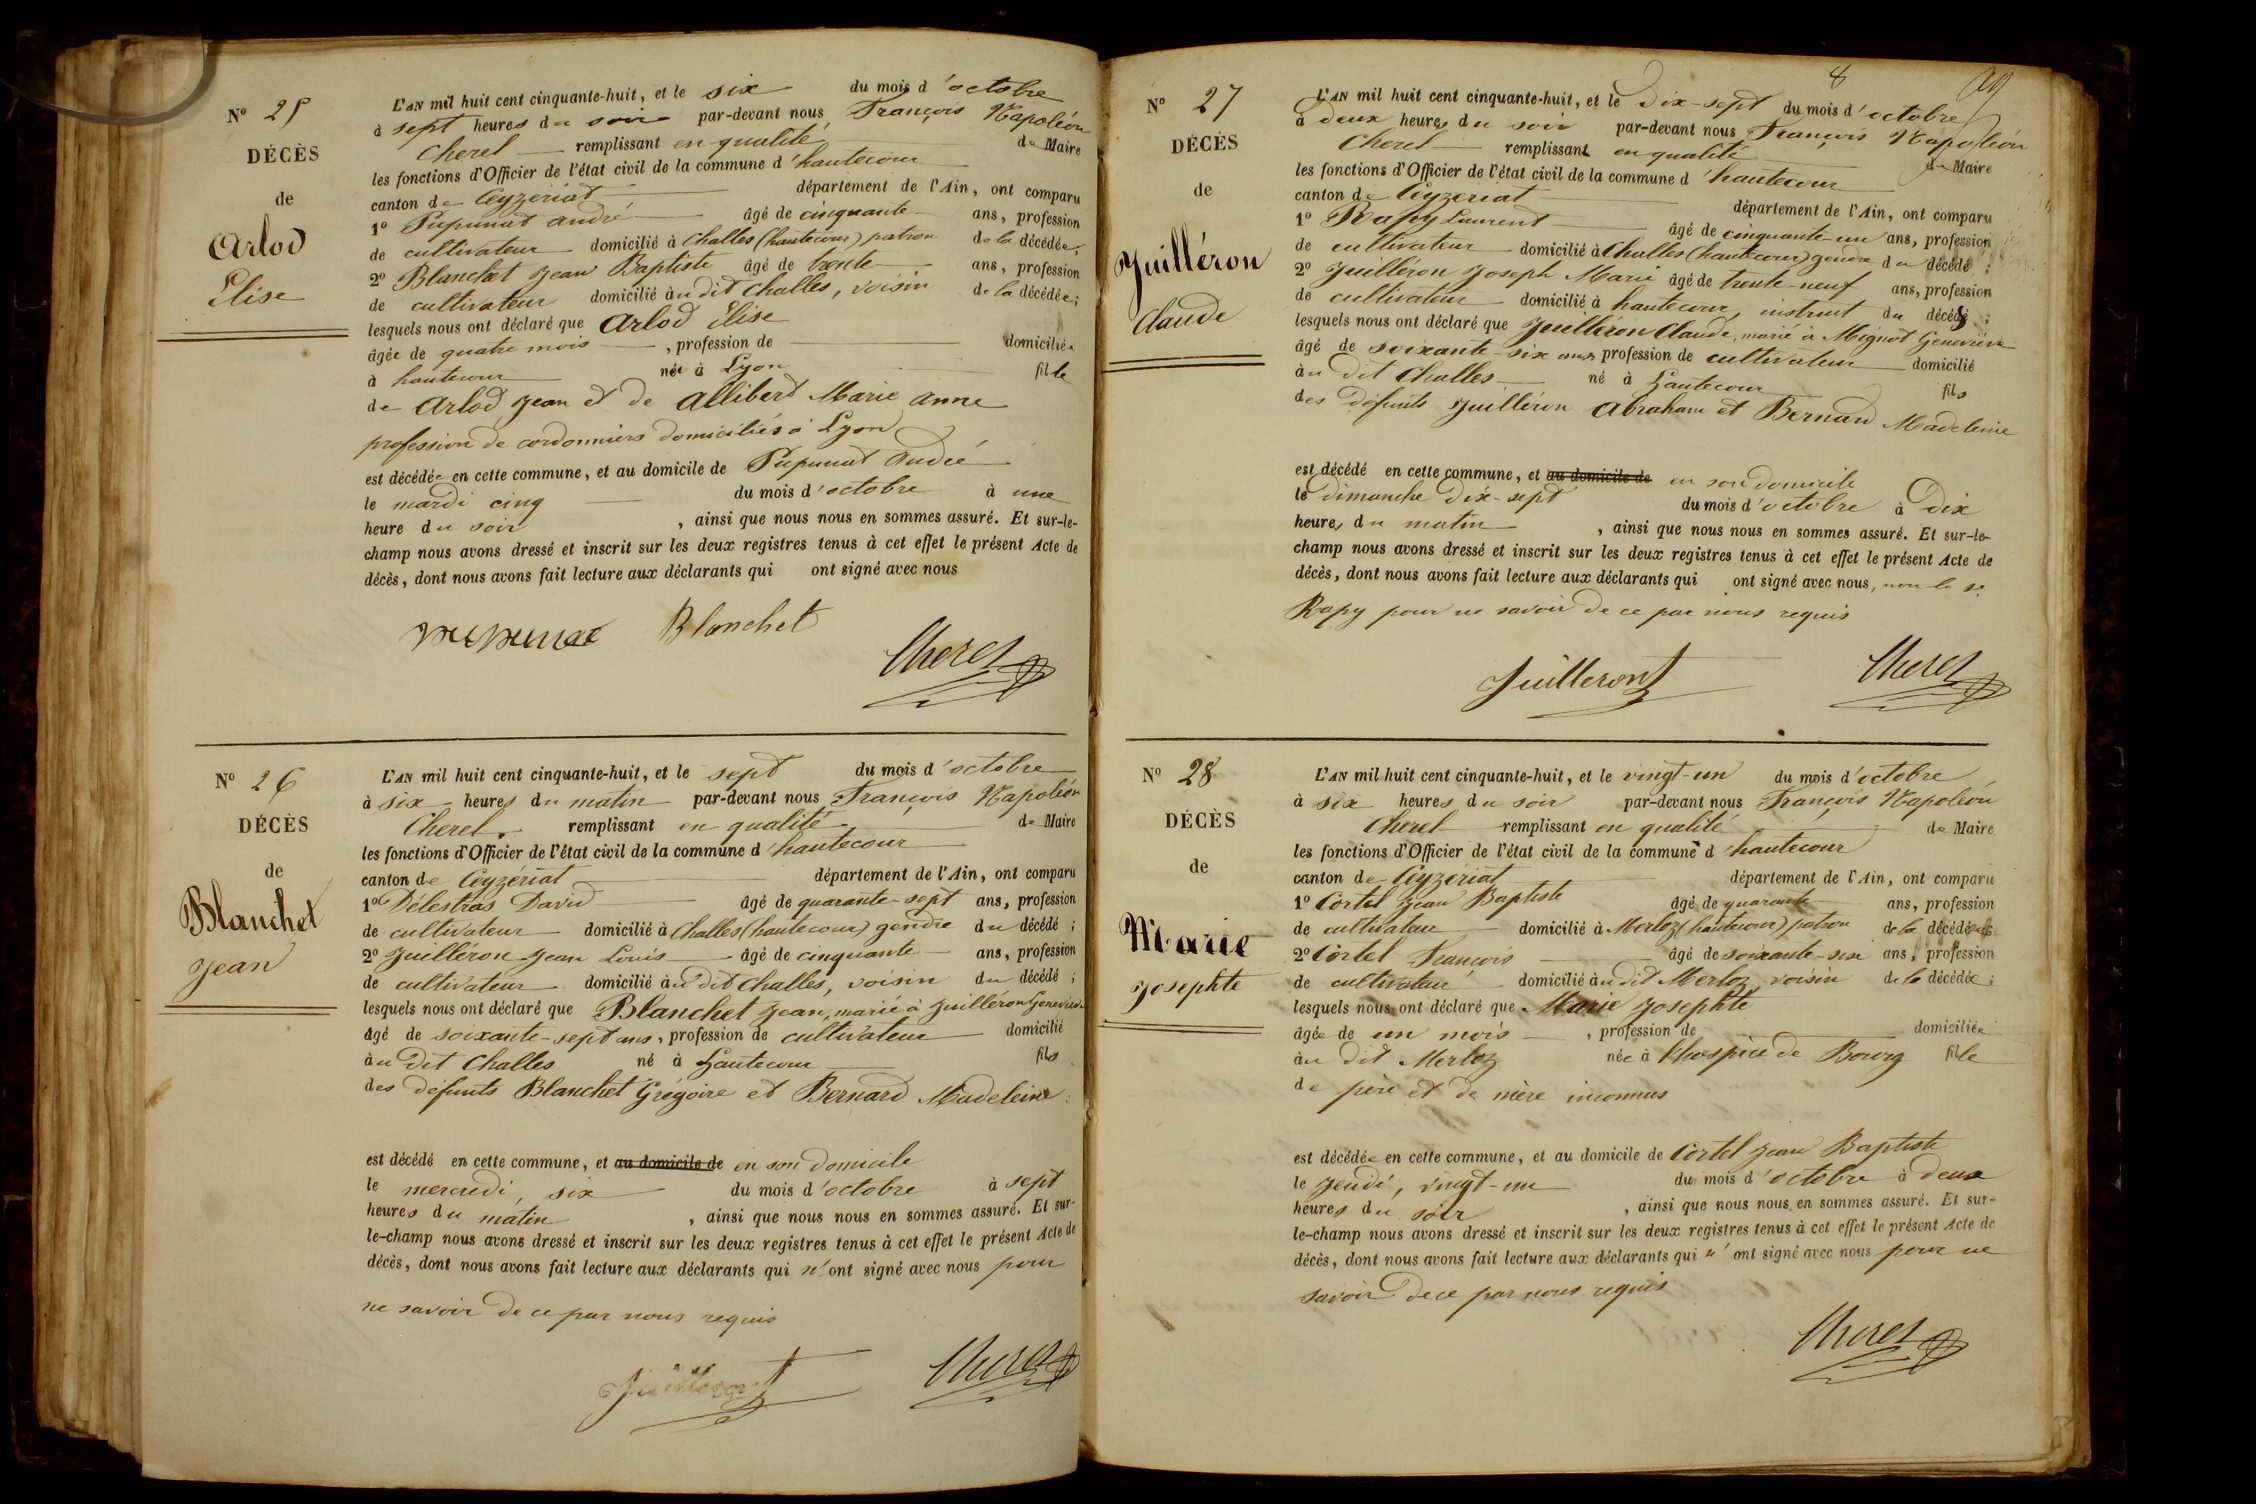 N° 25
DÉCÈS
de
Arlod
Elise
L'AN mil huit cent cinquante-huit, et le six du mois d'octobre
à sept heures du soir par-devant nous François Napoléon
Cherel remplissant en qualité de Maire
les fonctions d'Officier de l'état civil de la commune d'hautecour
canton de Ceyzériat département de l'Ain, ont comparu
1° Pupunat andré âgé de cinquante ans, profession
de cultivateur domicilié à Challes (hautecour) patron de la décédée;
2° Blanchet Jean Baptiste âgé de trente ans, profession
de cultivateur domicilié au dit Challes, voisin de la décédée;
lesquels nous ont déclaré que Arlod Elise
âgée de quatre mois, profession de domiciliée
à hautecour née à Lyon fille
de Arlod Jean et de Allibert Marie anne
profession de cordonniers domiciliés à Lyon
est décédée en cette commune, et au domicile de Pupunat André
le mardi cinq du mois d'octobre à une
heure du soir, ainsi que nous nous en sommes assuré. Et sur-le-
champ nous avons dressé et inscrit sur les deux registres tenus à cet effet le présent Acte de
décès, dont nous avons fait lecture aux déclarants qui ont signé avec nous
pupunat Blanchet
Cherel
N° 26
DÉCÈS
de
Blanchet
Jean
L'AN mil huit cent cinquante-huit, et le sept du mois d'octobre
à six heures du matin par-devant nous François Napoléon
Cherel remplissant en qualité de Maire
les fonctions d'Officier de l'état civil de la commune d'hautecour
canton de Ceyzériat département de l'Ain, ont comparu
1° Délestras David âgé de quarante-sept ans, profession
de cultivateur domicilié à Challes (hautecour) gendre du décédé;
2° Juilléron Jean Louis âgé de cinquante ans, profession
de cultivateur domicilié au dit Challes, voisin du décédé;
lesquels nous ont déclaré que Blanchet Jean, marié à Juilléron Geneviève
âgé de soixante-sept ans, profession de cultivateur domicilié
au dit Challes né à hautecour fils
des défunts Blanchet Grégoire et Bernard Madeleine
est décédé en cette commune, et au domicile de en son domicile
le mercredi, six du mois d'octobre à sept
heures du matin, ainsi que nous nous en sommes assuré. Et sur-
le-champ nous avons dressé et inscrit sur les deux registres tenus à cet effet le présent Acte de
décès, dont nous avons fait lecture aux déclarants qui n'ont signé avec nous pour
ne savoir de ce par nous requis
Juilleront Cherel
8
N° 27
DÉCÈS
de
Juilléron
Claude
L'AN mil huit cent cinquante-huit, et le Dix-sept du mois d'octobre
à deux heures du soir par-devant nous François Napoléon
Cherel remplissant en qualité de Maire
les fonctions d'Officier de l'état civil de la commune d'hautecour
canton de Ceyzériat département de l'Ain, ont comparu
1° Rapy Laurent âgé de cinquante-un ans, profession
de cultivateur domicilié à Challes (hautecour) gendre du décédé;
2° Juilléron Joseph Marie âgé de trente-neuf ans, profession
de cultivateur domicilié à hautecour, instruit du décès;
lesquels nous ont déclaré que Juilléron Claude, marié à Mignot Geneviève
âgé de soixante-six ans profession de cultivateur domicilié
au dit Challes né à hautecour fils
des défunts Juilléron Abraham et Bernard Madeleine
est décédé en cette commune, et au domicile de en son domicile
le Dimanche Dix-sept du mois d'octobre à Dix
heures du matin, ainsi que nous nous en sommes assuré. Et sur-le-
champ nous avons dressé et inscrit sur les deux registres tenus à cet effet le présent Acte de
décès, dont nous avons fait lecture aux déclarants qui ont signé avec nous, non le sr
Rapy pour ne savoir de ce par nous requis
Juilleront Cherel
N° 28
DÉCÈS
de
Marie
Josephte
L'AN mil huit cent cinquante-huit, et le vingt-un du mois d'octobre
à six heures du soir par-devant nous François Napoléon
Cherel remplissant en qualité de Maire
les fonctions d'Officier de l'état civil de la commune d'hautecour
canton de Ceyzériat département de l'Ain, ont comparu
1° Cortel Jean Baptiste âgé de quarante ans, profession
de cultivateur domicilié à Merloz (hautecour) patron de la décédée
2° Cortel François âgé de soixante-six ans, profession
de cultivateur domicilié au dit Merloz, voisin de la décédée;
lesquels nous ont déclaré que Marie Josephte
âgée de un mois, profession de domiciliée
au dit Merloz née à l'hospice de Bourg fille
de père et de mère inconnus
est décédée en cette commune, et au domicile de Cortel Jean Baptiste
le Jeudi, vingt-un du mois d'octobre à deux
heures du soir, ainsi que nous nous en sommes assuré. Et sur-
le-champ nous avons dressé et inscrit sur les deux registres tenus à cet effet le présent Acte de
décès, dont nous avons fait lecture aux déclarants qui n'ont signé avec nous pour ne
savoir de ce par nous requis
Cherel